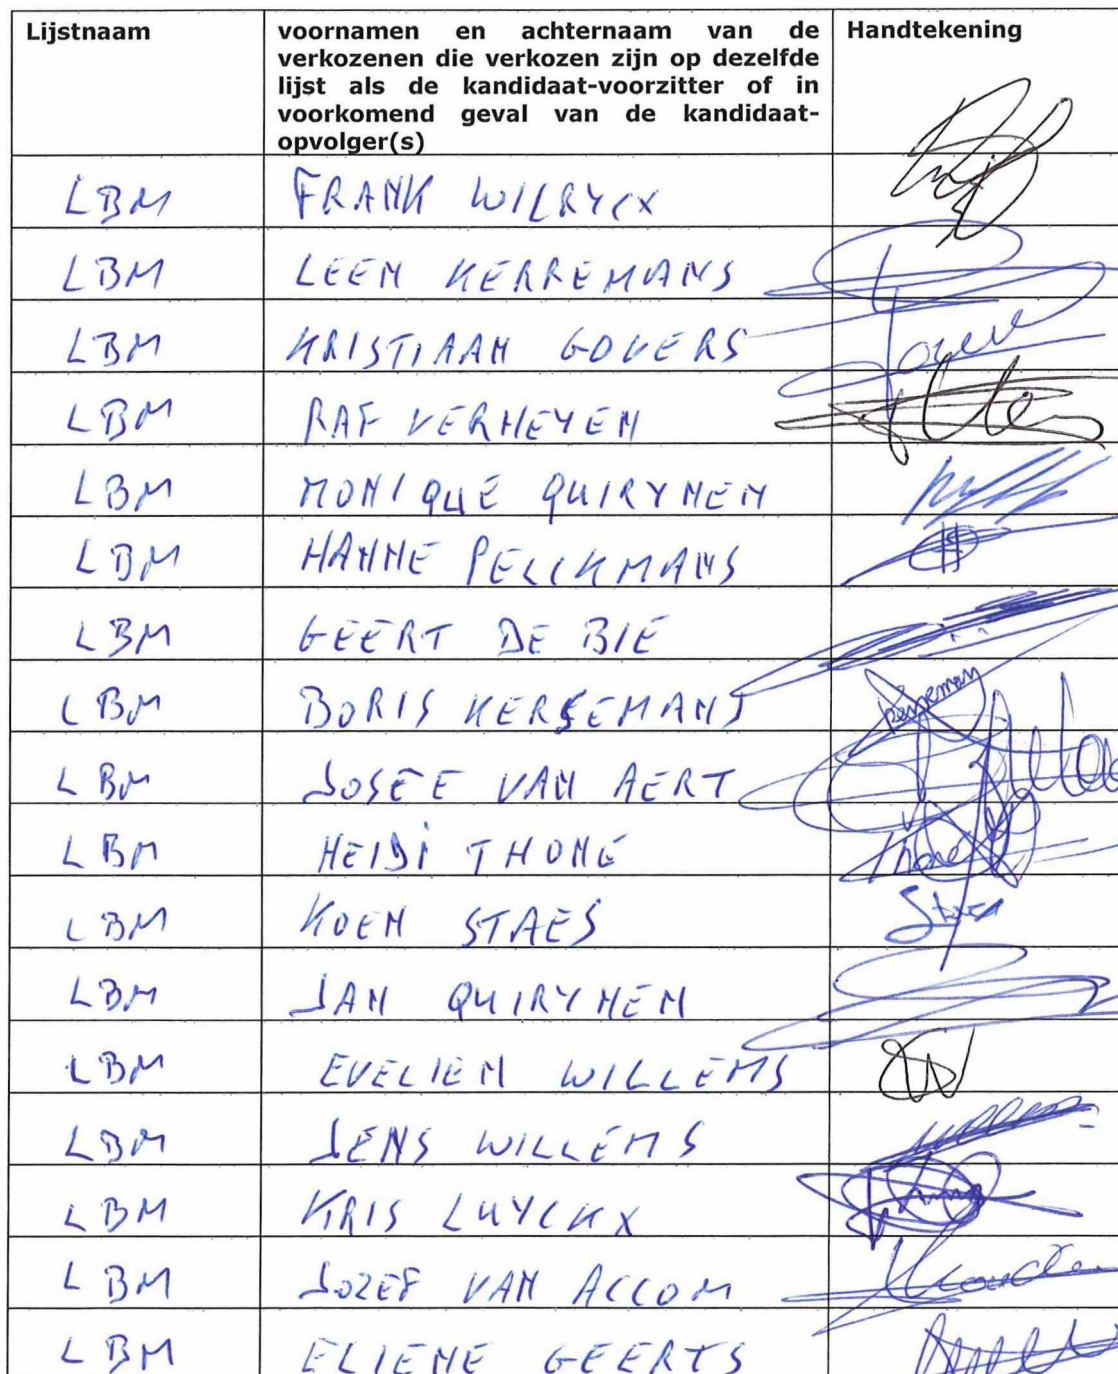 Lijstnaam
voornamen en achternaam van de
verkozenen die verkozen zijn op dezelfde
lijst als de kandidaat-voorzitter of in
voorkomend geval van de kandidaat-
opvolger(s)
Handtekening
LBM FRANK WILRYCX
LBM LEEN KERREMANS
LBM KRISTIAAN GOVERS
LBM RAF VERHEYEN
LBM MONIQUE QUIRYNEN
LBM HANNE PELCKMANS
LBM GEERT DE BIE
LBM BORIS KERSEMANS
LBM JOSEE VAN AERT
LBM HEIDI THONÉ
LBM KOEN STAES
LBM JAN QUIRYNEN
LBM EVELIEN WILLEMS
LBM JENS WILLEMS
LBM KRIS LUYCKX
LBM JOZEF VAN ACCOM
LBM ELIENE GEERTS